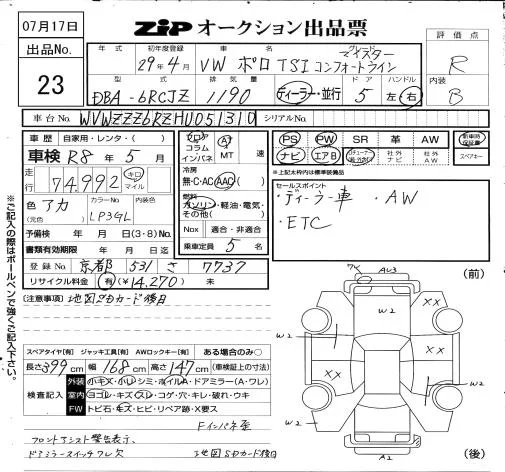 07月17日
出品No.
23
ZIP オークション出品票
年式 初年度登録 車名 グレード 評価点
29年4月 VW ポロ TSI マイスター コンフォートライン R
型式 排気量 ドア ハンドル 内装
DBA-6RCJZ 1190 ディーラー・並行 5 左 右 B
車台No. WVWZZZ6RZHU051310 シリアルNo.
車歴 自家用・レンタ・( )
車検 R8年5月
走行 74,992 キロ マイル
色 アカ (元色) カラーNo. LP3GL 内装色
予備検有効期限 年 月 日(3・8)No.
書類有効期限 年 月 日迄
登録No. 京都 531 さ 7737
リサイクル料金 有(¥14,270) 未
フロア コラム インパネ AT MT 速
冷房 無・C・AC AAC
燃料 ガソリン・軽油・電気・その他( )
Nox 適合・非適合
乗車定員 5 名
PS PW SR 革 AW 新車時保証書
ナビ エアB 社外ナビ 社外AW スペアキー
※上記太枠内は標準装備品
セールスポイント
・ディーラー車 ・AW
・ETC
※ご記入の際はボールペンで強くご記入下さい。
(注意事項) 地図SDカード後日
スペアタイヤ[有] ジャッキ工具[有] AWロックキー[有] ある場合のみ○
長さ 399cm 幅 168cm 高さ 147cm (車検証上の寸法)
検査記入
外装 小キズ・小凹・シミ・ホイルA・ドアミラー(A・ワレ)
室内 ヨゴレ・キズ・スレ・コゲ・穴・キレ・破れ・ウキ
FW トビ石・キズ・ヒビ・リペア跡・X要ス
Fインパネ歪
フロントアシスト警告表示、
ドアミラースイッチワレ欠 地図SDカード後日
(前)
AU3
W2
XX
XX
W2
W2
XX
W2
W2
A2
(後)